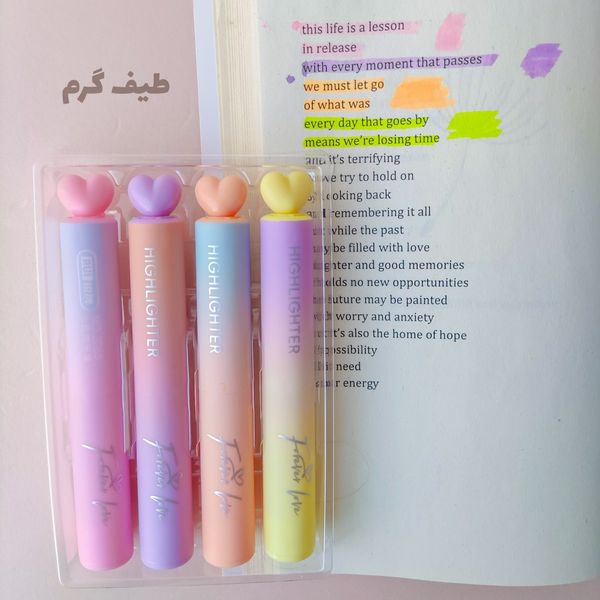 طیف گرم
this life is a lesson
in release
with every moment that passes
we must let go
of what was
every day that goes by
means we're losing time
and it's terrifying
we try to hold on
looking back
remembering it all
while the past
may be filled with love
and good memories
holds no new opportunities
future may be painted
worry and anxiety
it's also the home of hope
possibility
need
your energy
HIGHLIGHTER
HIGHLIGHTER
HIGHLIGHTER
Forever love
Forever love
Forever love
Forever love